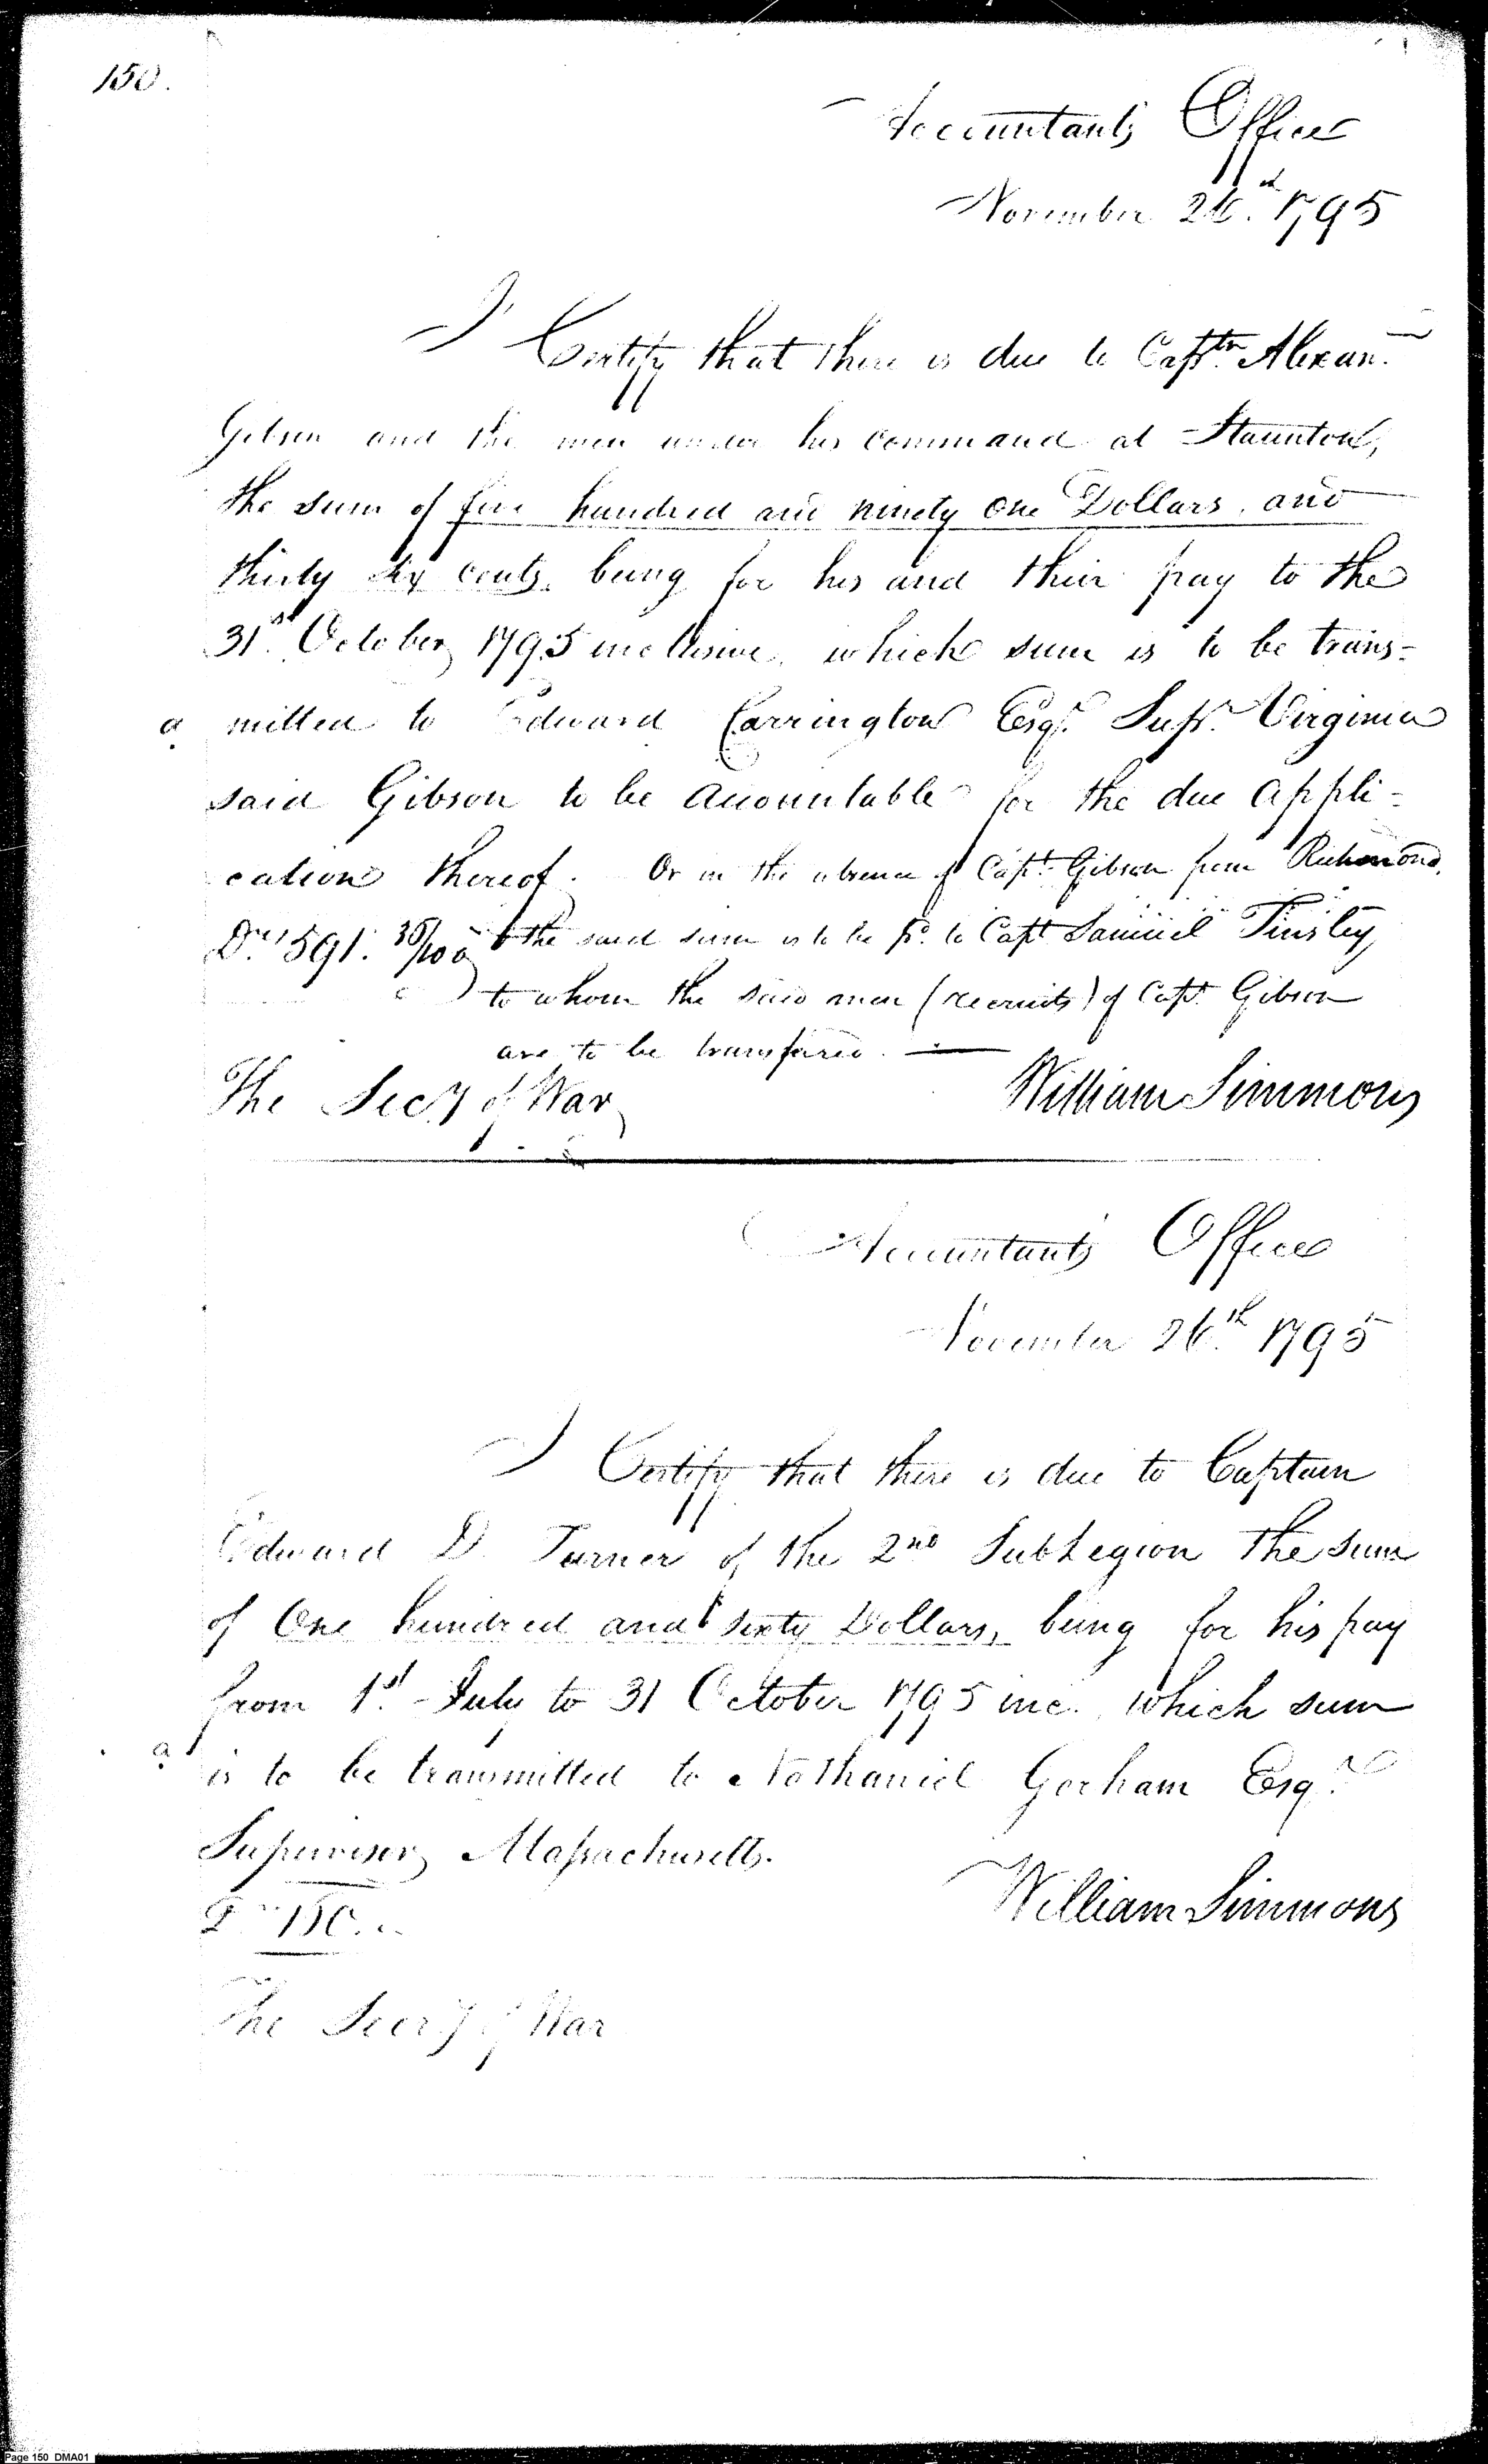 150.
Accountants Office
November 26.th 1795
I Certify that there is due to Captn. Alexanr.
Gibson and the men under his command at Staunton,
the sum of five hundred and ninety one Dollars, and
thirty six cents, being for his and their pay to the
31st. October, 1795 inclusive, which sum is to be trans=
a mitted to Edward Carrington Esqr. Supr. Virginia
said Gibson to be accountable for the due appli=
cation thereof. Or in the absence of Capt. Gibson from Richmond,
Drs. 591. 36/100 the said sum is to be pd. to Capt Samuel Tinsley
to whom the said men (recruits) of Capt. Gibson
are to be transfared.
The Secy of War
William Simmons
Accountants Office
November 26.th 1795
I Certify that there is due to Captain
Edward D. Turner of the 2nd SubLegion the sum
of One hundred and sixty Dollars, being for his pay
from 1st. July to 31 October 1795 inc. which sum
a is to be transmitted to Nathaniel Gorham Esqr.
Supervisor, Massachusetts.
William Simmons
The Secry of War
Page 150 DMA01